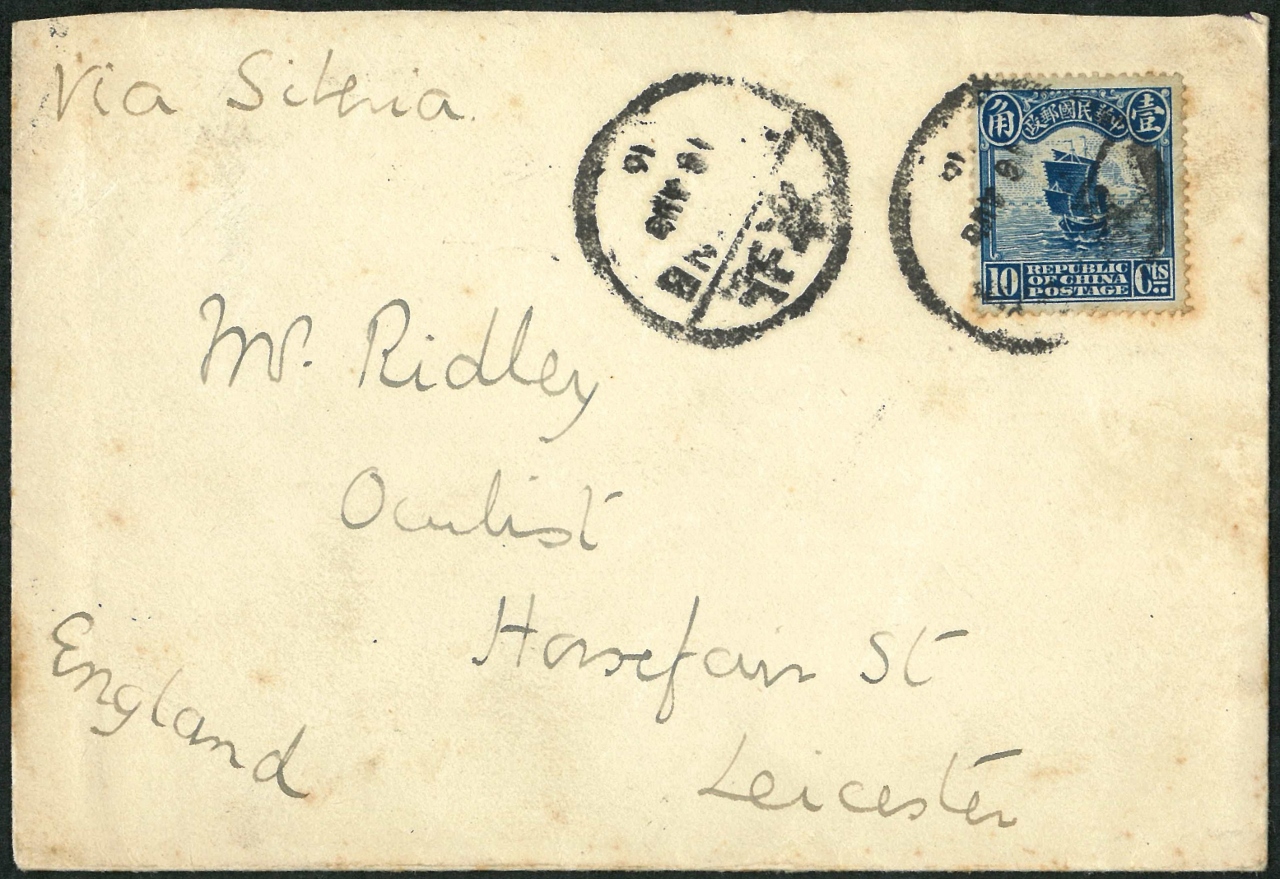 Via Siberia
角 中華民國郵政 壹
10 REPUBLIC OF CHINA POSTAGE Cts
16
Mr. Ridley
Oculist
Horsefair St
Leicester
England